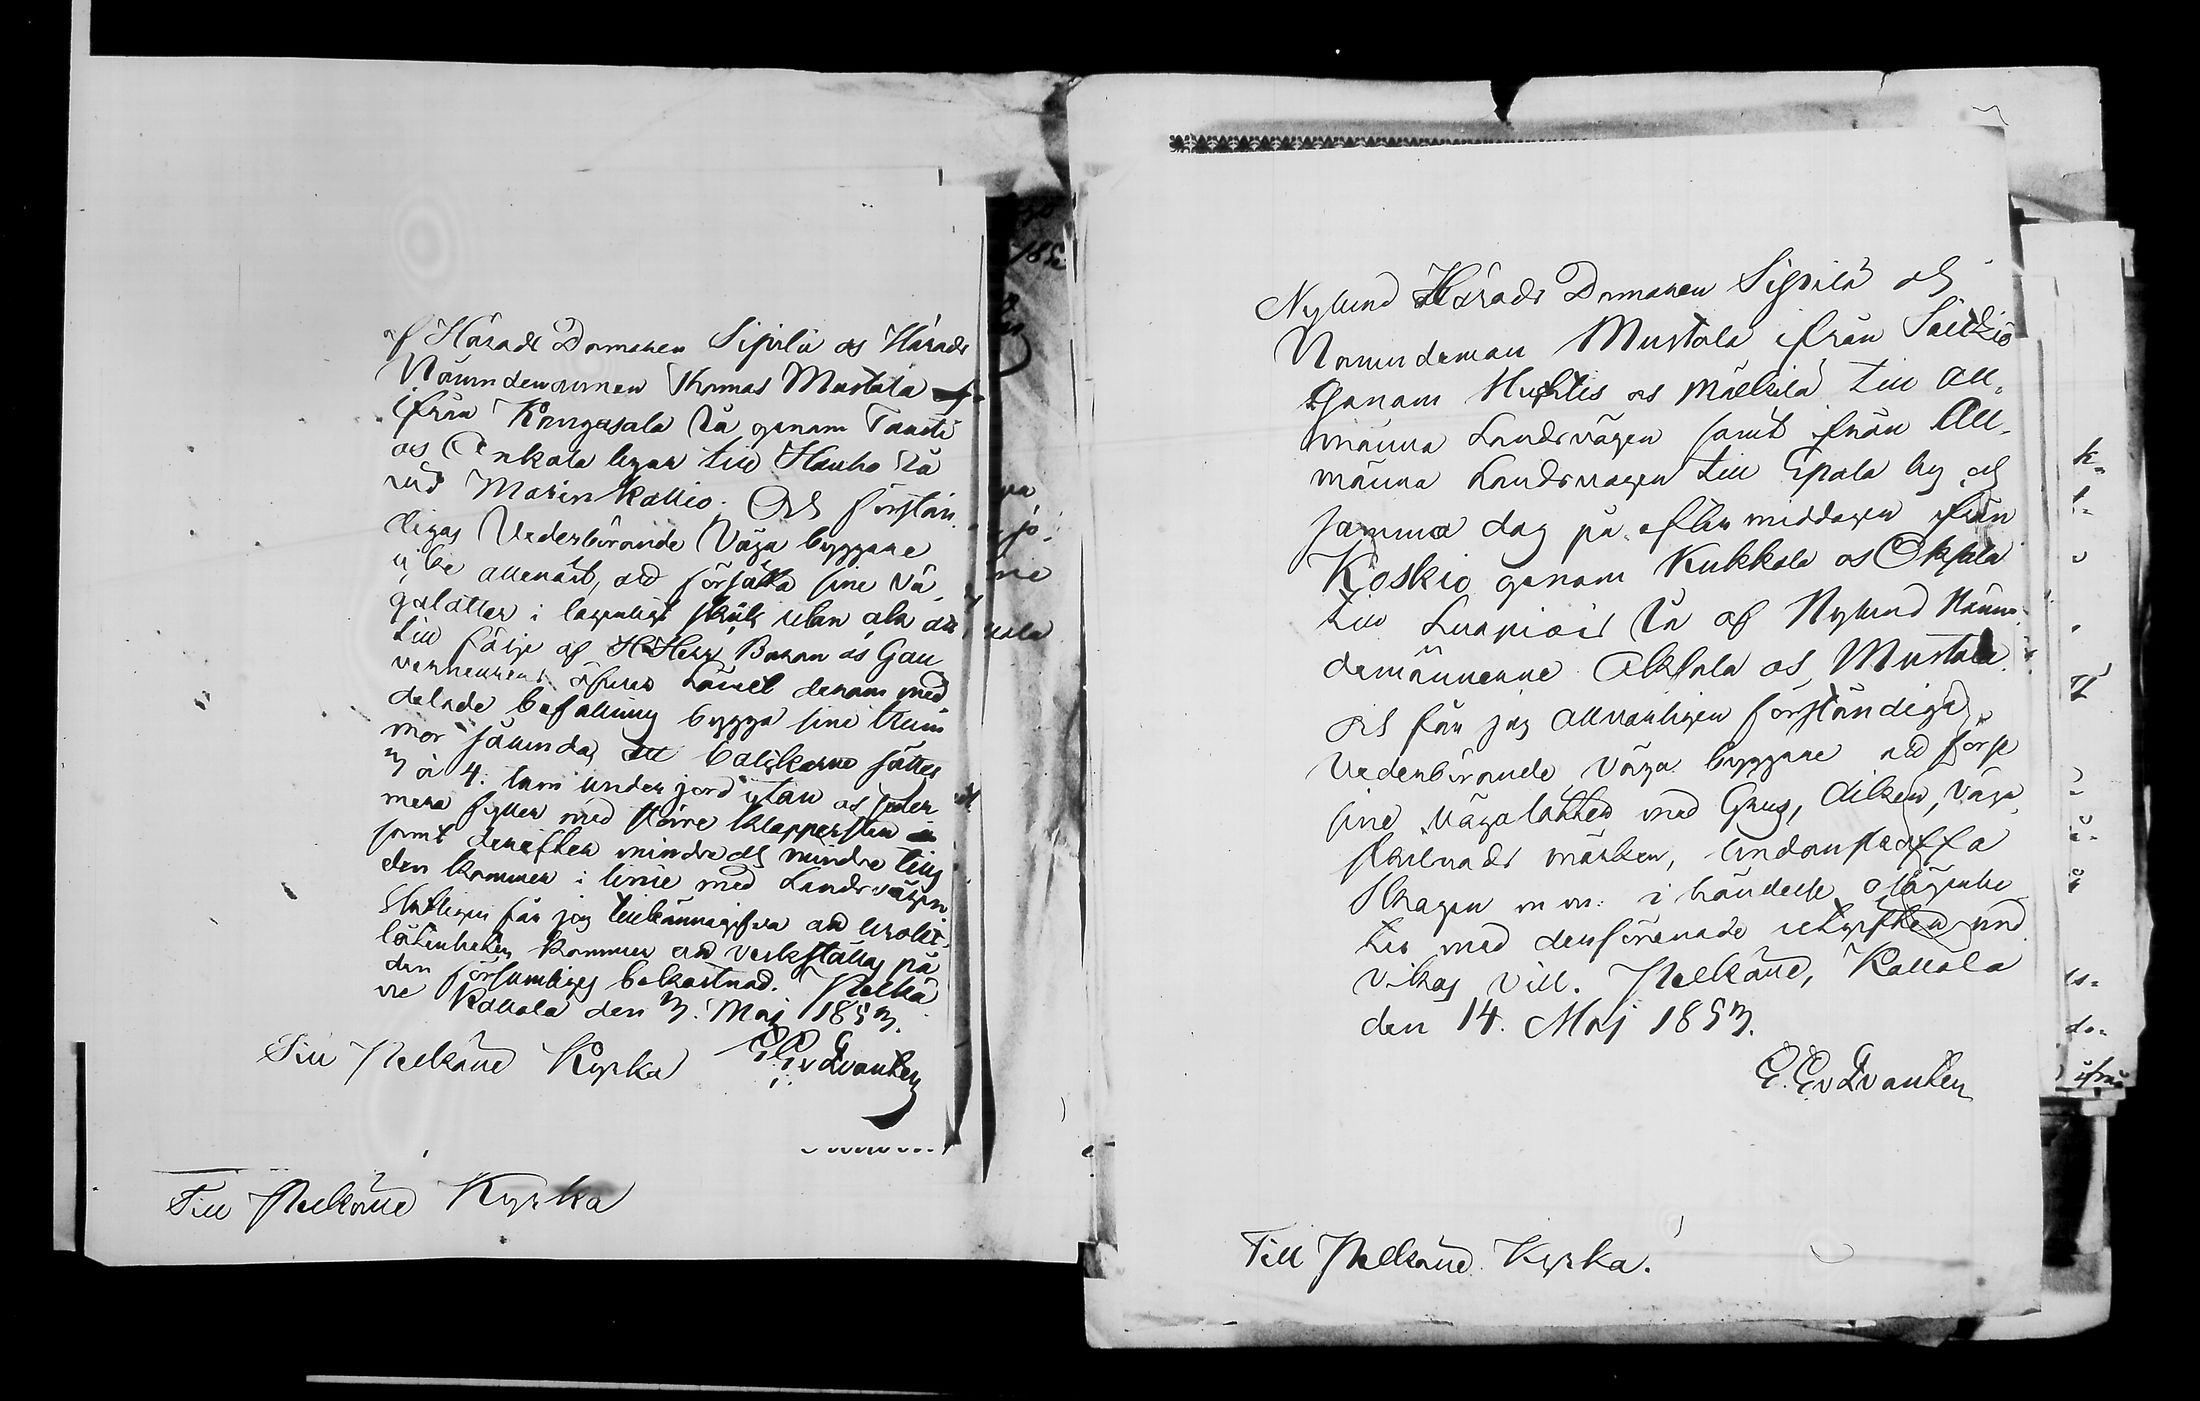 af Härads Domaren Sipilä os Härads
Nämndemannen Thomas Mustala
ifrån Kangasala Rå genom Tausti
os Onkala byar till Hauho Rå
vid Marinkallio. Och förstän-
digas Vederbörande Väga byggare
icke allenast, att försätta sine Vä-
galåtter i lagenligt skick utan ock att
till följe af H Herr Baron os Gou
verneurens öfver Länet derom med
delade befallning bygga sine Trum
mor sålunda att balkarne sättes
3 à 4. tum under jord ytan os seder
mera fylles med större Klappersten
samt derefter mindre och mindre tills
den kommer i linie med Landsvägen.
Slutligen får jag tillkännagifva att uraktt-
låtenheten kommer att verkställas på
den försumliges bekostnad. Pelkä
ne Kallala den 3. Maj 1853.
E. E v Qvanten
Till Pelkäne Kyrka
Till Pelkäne Kyrka
185
k-
t-
do-
ifrån
Nylund Härads Domaren Sipilä och
Nämndeman Mustala ifrån Saixiö
Genom Huhtis os Mälkilä till All-
männa Landsvägen samt ifrån All-
männa Landsvägen till Epala by och
samma dag på eftermiddagen från
Koskio genom Kukkola os Okkola
till Luopiois Rå af Nylund Näm-
demännerne Akkala os Mustala.
och får jag allvarligen förständiga
Vederbörande Väga byggare att förse
sine Vägalåtter med Grus, diken, väga
skilnads märken, undanskaffa
Skogen m m. i händelse olägenhe
ter med densamma utsyften und
vikas vill. Pelkäne, Kallala
den 14. Maj 1853.
E. E v Qvanten
Till Pelkäne Kyrka.